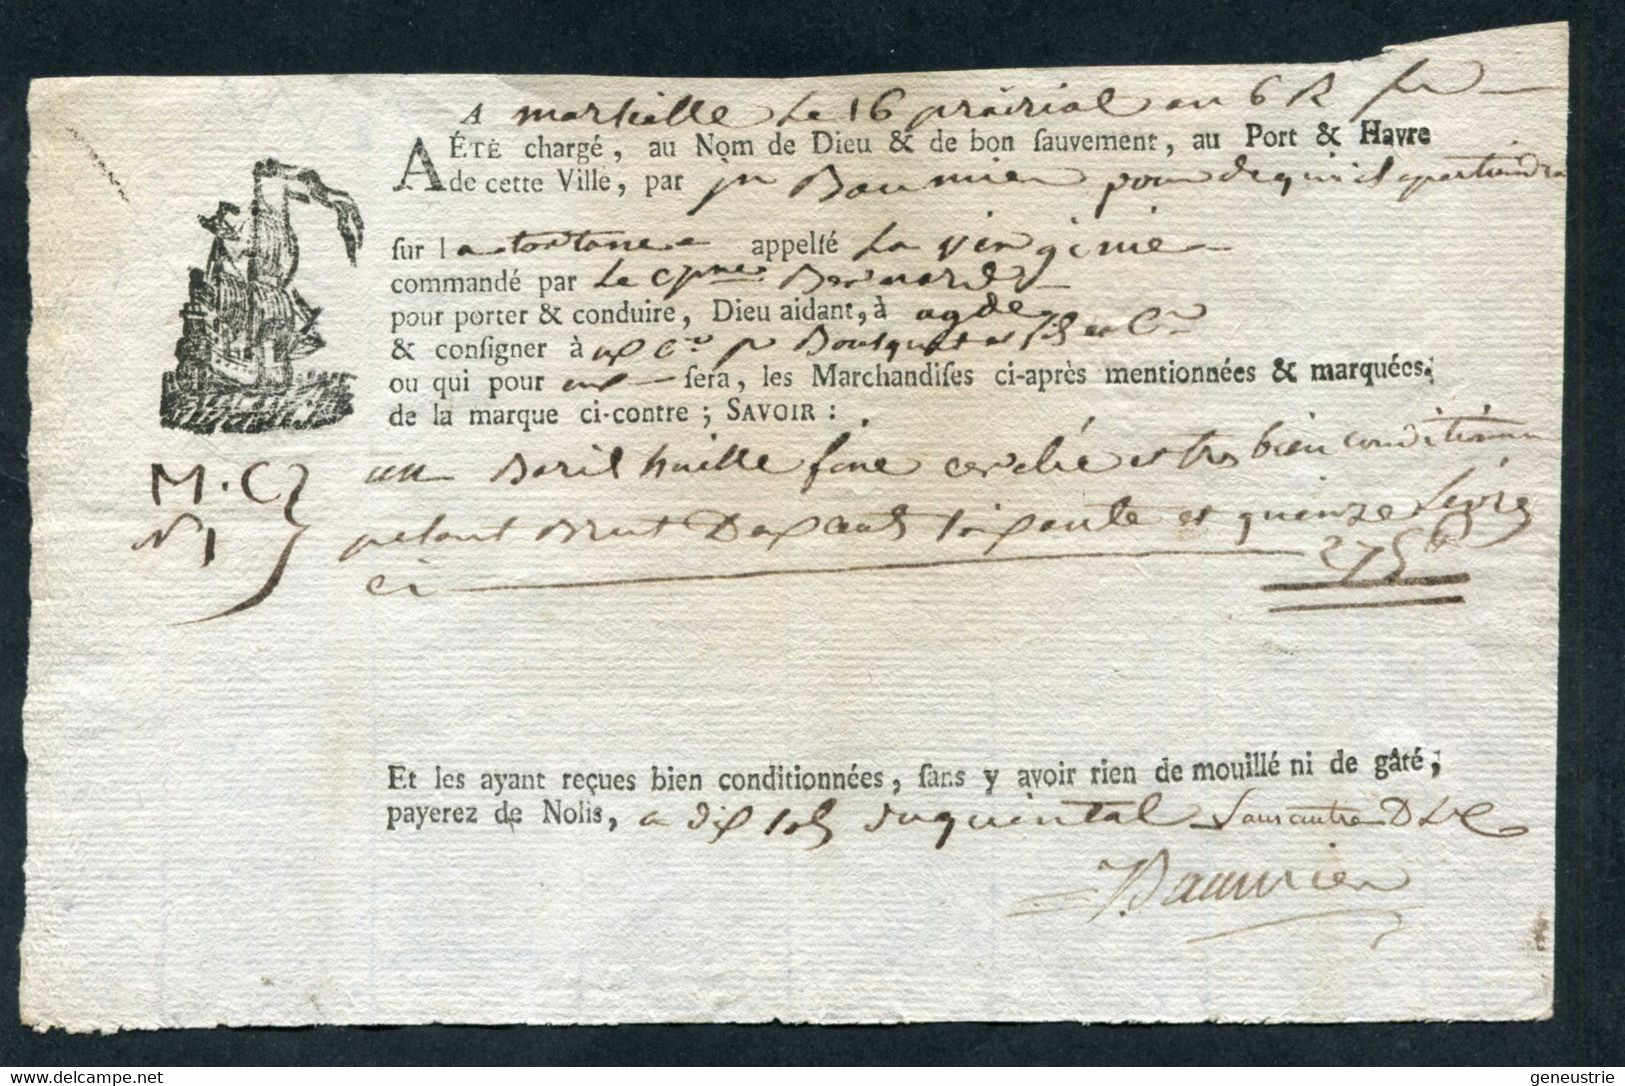 A marseille Le 16 prairial an 6 R fr
A ÉTÉ chargé, au Nom de Dieu & de bon ſauvement, au Port & Havre
de cette Ville, par jn Baumier pour de qui il apartiendra
ſur la tartane appellé La virginie
commandé par Le Cpne Bernard
pour porter & conduire, Dieu aidant, à agde
& conſigner à aux Cns Bousquet et fils et Cie
ou qui pour eux ſera, les Marchandiſes ci-après mentionnées & marquées
de la marque ci-contre ; SAVOIR :
M. C
N 1
un Baril huille fine cerclé et tres bien conditionn
pesant Brut Deux cents soixante et quinze Livres
ci 275 lb
Et les ayant reçues bien conditionnées, ſans y avoir rien de mouillé ni de gâté,
payerez de Nolis, a dix sols du quintal sans autre
Baumier
geneustrie